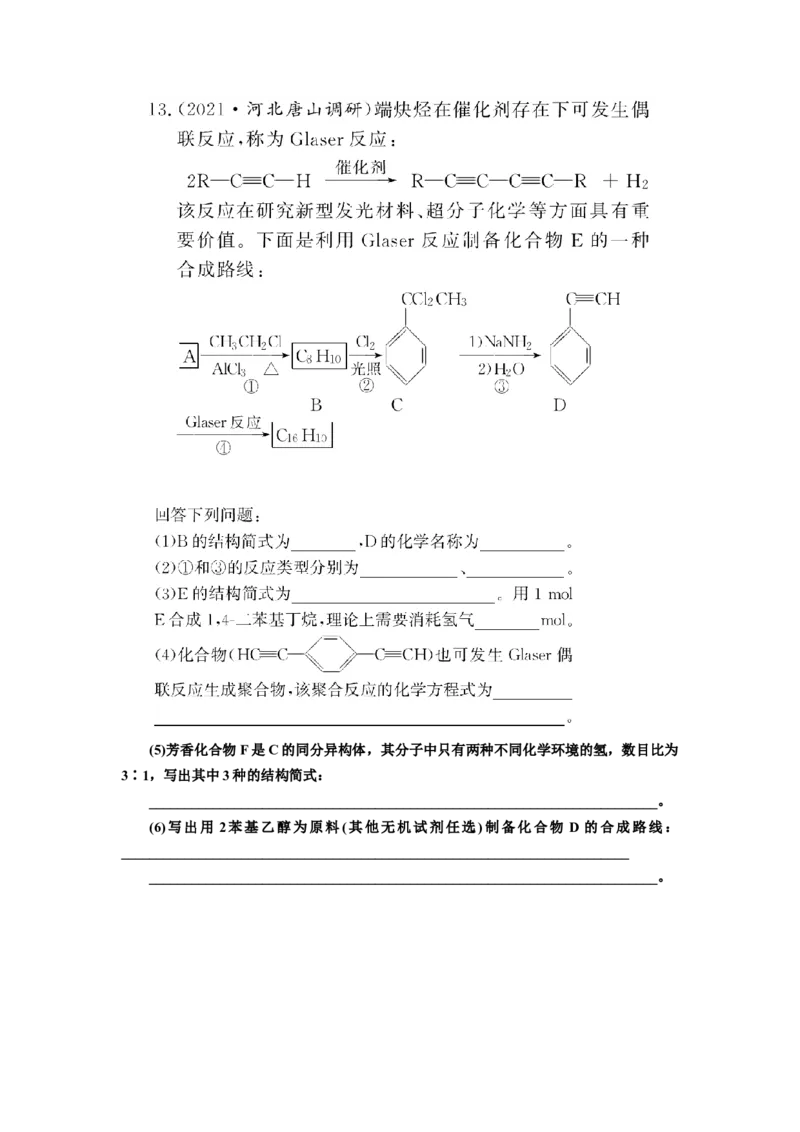 13.(2021·河北唐山调研)端炔烃在催化剂存在下可发生偶
联反应,称为 Glaser 反应:
2R—C≡C—H 催化剂 R—C≡C—C≡C—R + H₂
该反应在研究新型发光材料、超分子化学等方面具有重
要价值。下面是利用 Glaser 反应制备化合物 E 的一种
合成路线:
CCl₂CH₃ C≡CH
A CH₃CH₂Cl C₈H₁₀ Cl₂ 1)NaNH₂
AlCl₃ △ 光照 2)H₂O
① ② ③
B C D
Glaser 反应 C₁₆H₁₀
④
回答下列问题:
(1)B的结构简式为________,D的化学名称为__________。
(2)①和③的反应类型分别为____________、____________。
(3)E的结构简式为________________________。用 1 mol
E合成 1,4-二苯基丁烷,理论上需要消耗氢气________mol。
(4)化合物(HC≡C— —C≡CH)也可发生 Glaser 偶
联反应生成聚合物,该聚合反应的化学方程式为__________
__________________________________________________。
(5)芳香化合物 F 是 C 的同分异构体，其分子中只有两种不同化学环境的氢，数目比为
3∶1，写出其中 3 种的结构简式：
______________________________________________________________。
(6)写出用 2苯基乙醇为原料(其他无机试剂任选)制备化合物 D 的合成路线：
______________________________________________________________
______________________________________________________________。